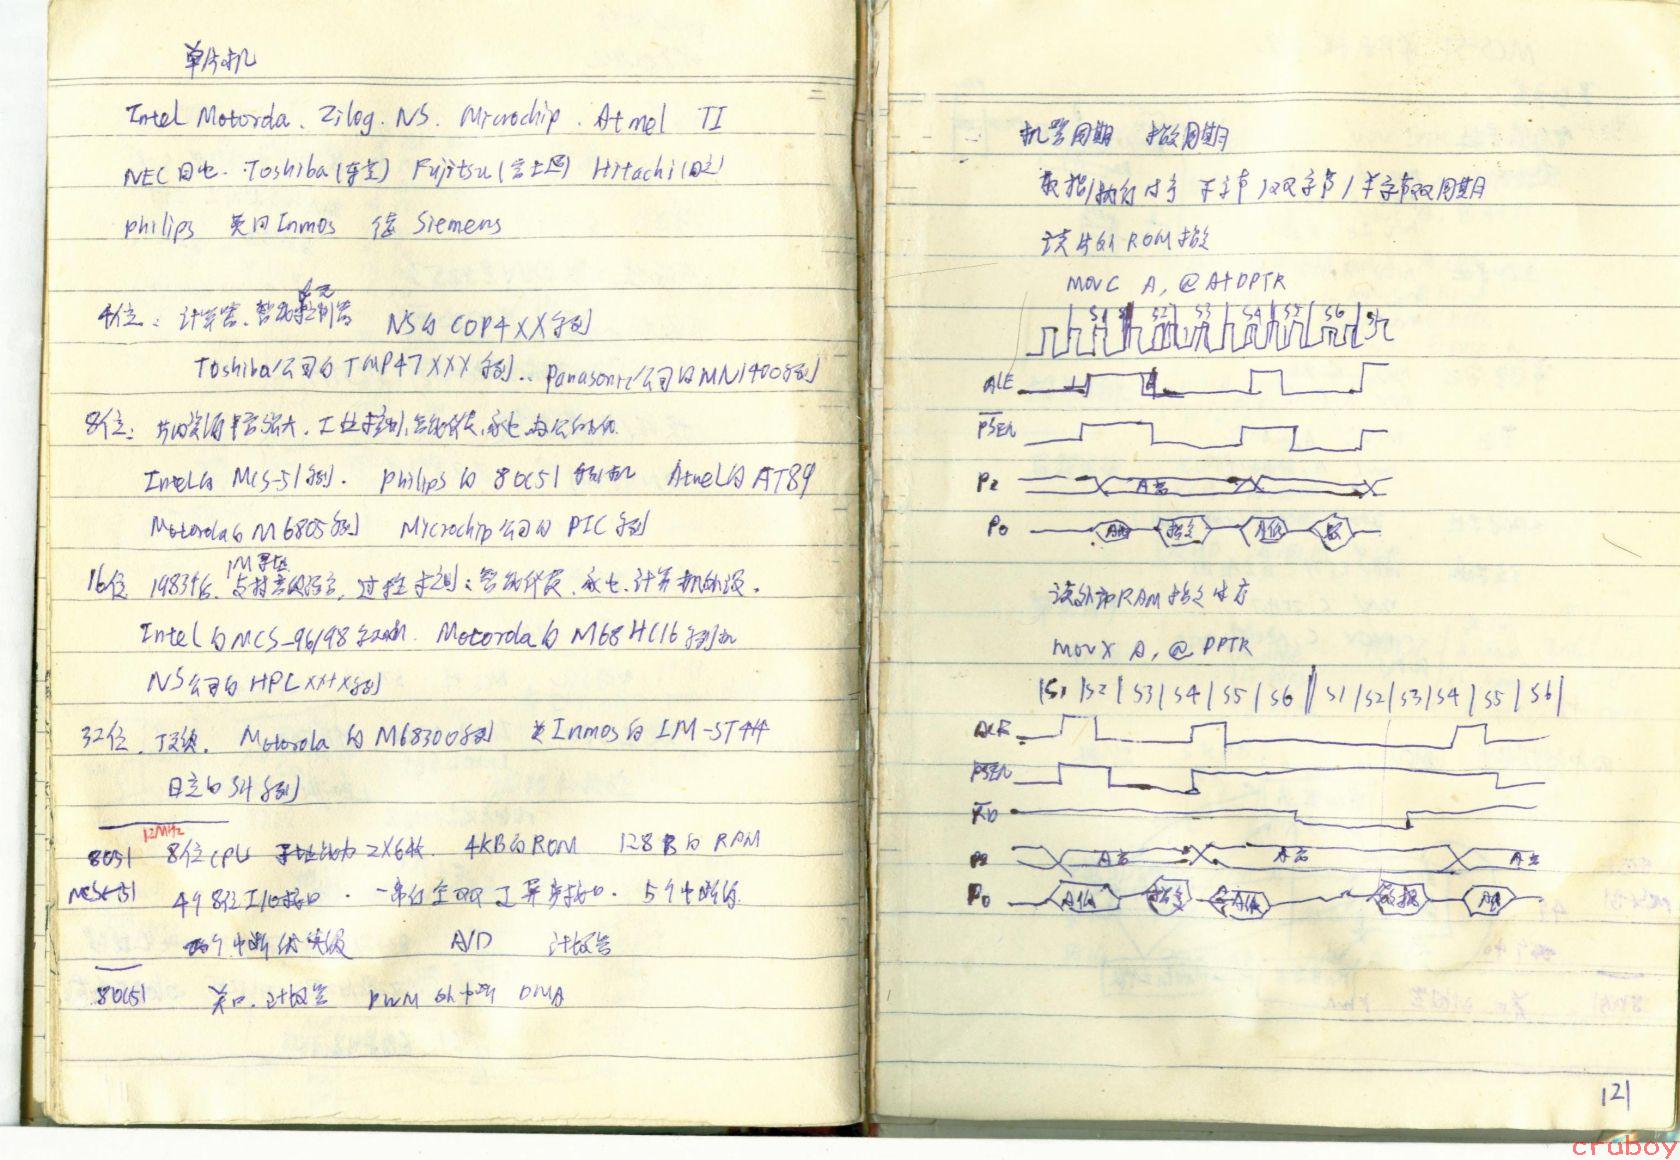 单片机
Intel Motorola . Zilog . NS . Microchip . Atmel TI
NEC 日电 . Toshiba (东芝) Fujitsu (富士通) Hitachi (日立)
philips 英国 Inmos 德 Siemens
4位: 计算器、智能控制器 NS的 COP4XX系列
Toshiba公司的 TMP47XXX系列.. Panasonic公司的MN1400系列
8位: 片内资源丰富强大、工业控制、智能仪表、家电、办公
Intel的 MCS-51系列. philips的 80C51 系列机 Atmel的 AT89
Motorola的 M6805系列 Microchip公司的 PIC系列
1M寻址
16位 1983年 支持高级语言, 过程控制、智能仪表、家电、计算机外设.
Intel的MCS-96/98 Motorola的 M68HC16系列机
NS公司的HPCXXXX系列
32位. 顶级. Motorola的M68300系列 英Inmos的IM-ST44
日立的SH系列
12MHz
8051 8位CPU 寻址能力 2X64K. 4KB的ROM 128B的RAM
MCS-51 4个8位I/O接口 . 一串行全双工异步接口. 5个中断源
2个中断优先级 A/D 计数器
80C51 并口. 计数器 PWM DMA
机器周期 指令周期
取指/执行时序 单字节/双字节/单字节双周期
读片外ROM指令
MOVC A, @A+DPTR
S1 S2 S3 S4 S5 S6 S1
ALE
PSEN
P2 A高
P0 A低 指令 A低 数
读外部RAM指令时序
MOVX A, @DPTR
|S1|S2|S3|S4|S5|S6||S1|S2|S3|S4|S5|S6|
ALE
PSEN
RD
P2 A高 A高 A高
P0 A低 指令 A低 数据 A低
121
cruboy